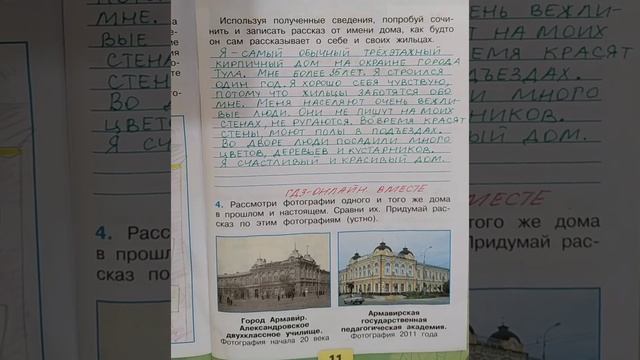 Используя полученные сведения, попробуй сочи-
нить и записать рассказ от имени дома, как будто
он сам рассказывает о себе и своих жильцах.
Я – САМЫЙ ОБЫЧНЫЙ ТРЁХЭТАЖНЫЙ
КИРПИЧНЫЙ ДОМ НА ОКРАИНЕ ГОРОДА
ТУЛА. МНЕ БОЛЕЕ 35 ЛЕТ. Я СТРОИЛСЯ
ОДИН ГОД. Я ХОРОШО СЕБЯ ЧУВСТВУЮ,
ПОТОМУ ЧТО ЖИЛЬЦЫ ЗАБОТЯТСЯ ОБО
МНЕ. МЕНЯ НАСЕЛЯЮТ ОЧЕНЬ ВЕЖЛИ-
ВЫЕ ЛЮДИ. ОНИ НЕ ПИШУТ НА МОИХ
СТЕНАХ, НЕ РУГАЮТСЯ. ВОВРЕМЯ КРАСЯТ
СТЕНЫ, МОЮТ ПОЛЫ В ПОДЪЕЗДАХ.
ВО ДВОРЕ ЛЮДИ ПОСАДИЛИ МНОГО
ЦВЕТОВ, ДЕРЕВЬЕВ И КУСТАРНИКОВ.
Я СЧАСТЛИВЫЙ И КРАСИВЫЙ ДОМ.
ГДЗ-ОНЛАЙН ВМЕСТЕ
4. Рассмотри фотографии одного и того же дома
в прошлом и настоящем. Сравни их. Придумай рас-
сказ по этим фотографиям (устно).
Город Армавир.
Александровское
двухклассное училище.
Фотография начала 20 века
Армавирская
государственная
педагогическая академия.
Фотография 2011 года
11